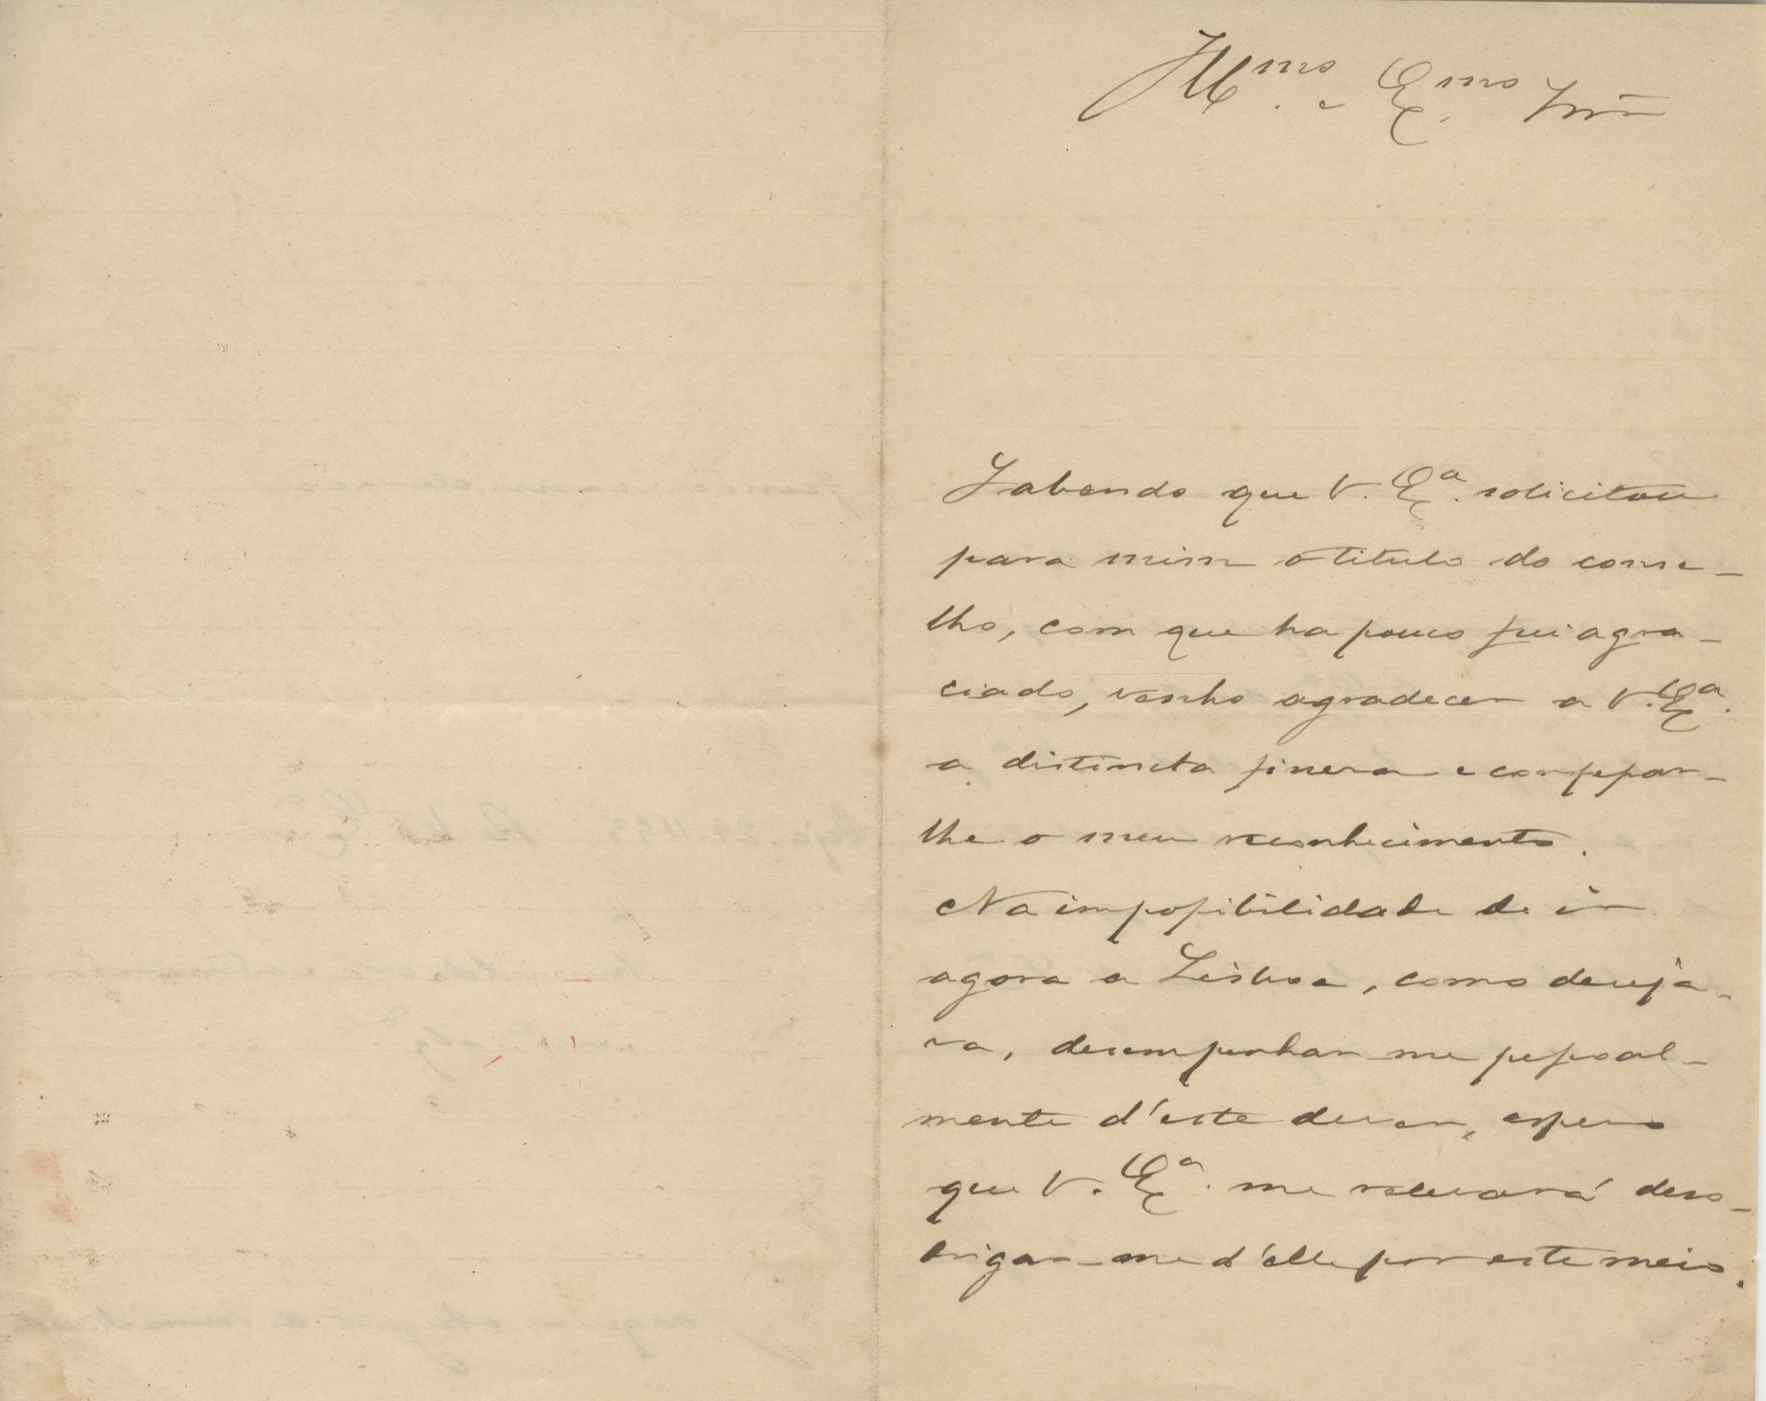 Ill.mo e Ex.mo Snr.
Sabendo que V. Ex.a solicitou
para mim o titulo do conse-
lho, com que ha pouco fui agra-
ciado, venho agradecer a V. Ex.a
a distincta fineza e confessar-
lhe o meu reconhecimento.
Na impossibilidade de ir
agora a Lisboa, como deseja-
va, desempenhar-me pessoal-
mente d'este dever, espero
que V. Ex.a me relevará deso-
brigar-me d'elle por este meio.